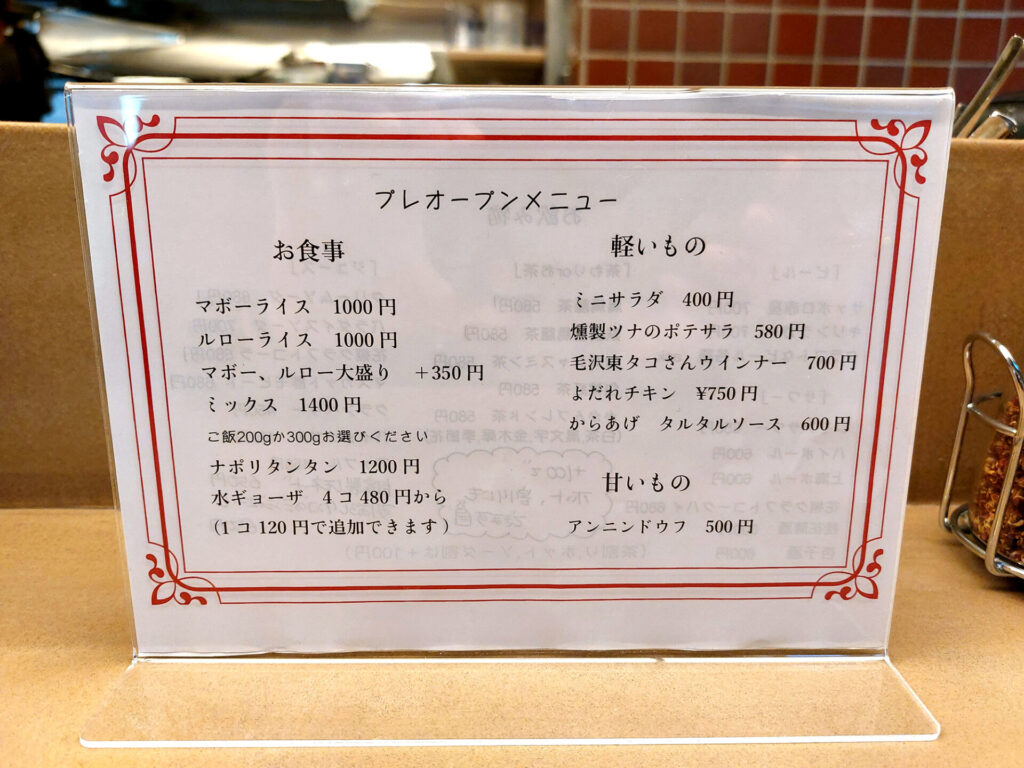 プレオープンメニュー
お食事
マボーライス 1000円
ルローライス 1000円
マボー、ルロー大盛り +350円
ミックス 1400円
ご飯200gか300gお選びください
ナポリタンタン 1200円
水ギョーザ 4コ480円から
(1コ120円で追加できます)
軽いもの
ミニサラダ 400円
燻製ツナのポテサラ 580円
毛沢東タコさんウインナー 700円
よだれチキン ¥750円
からあげ タルタルソース 600円
甘いもの
アンニンドウフ 500円